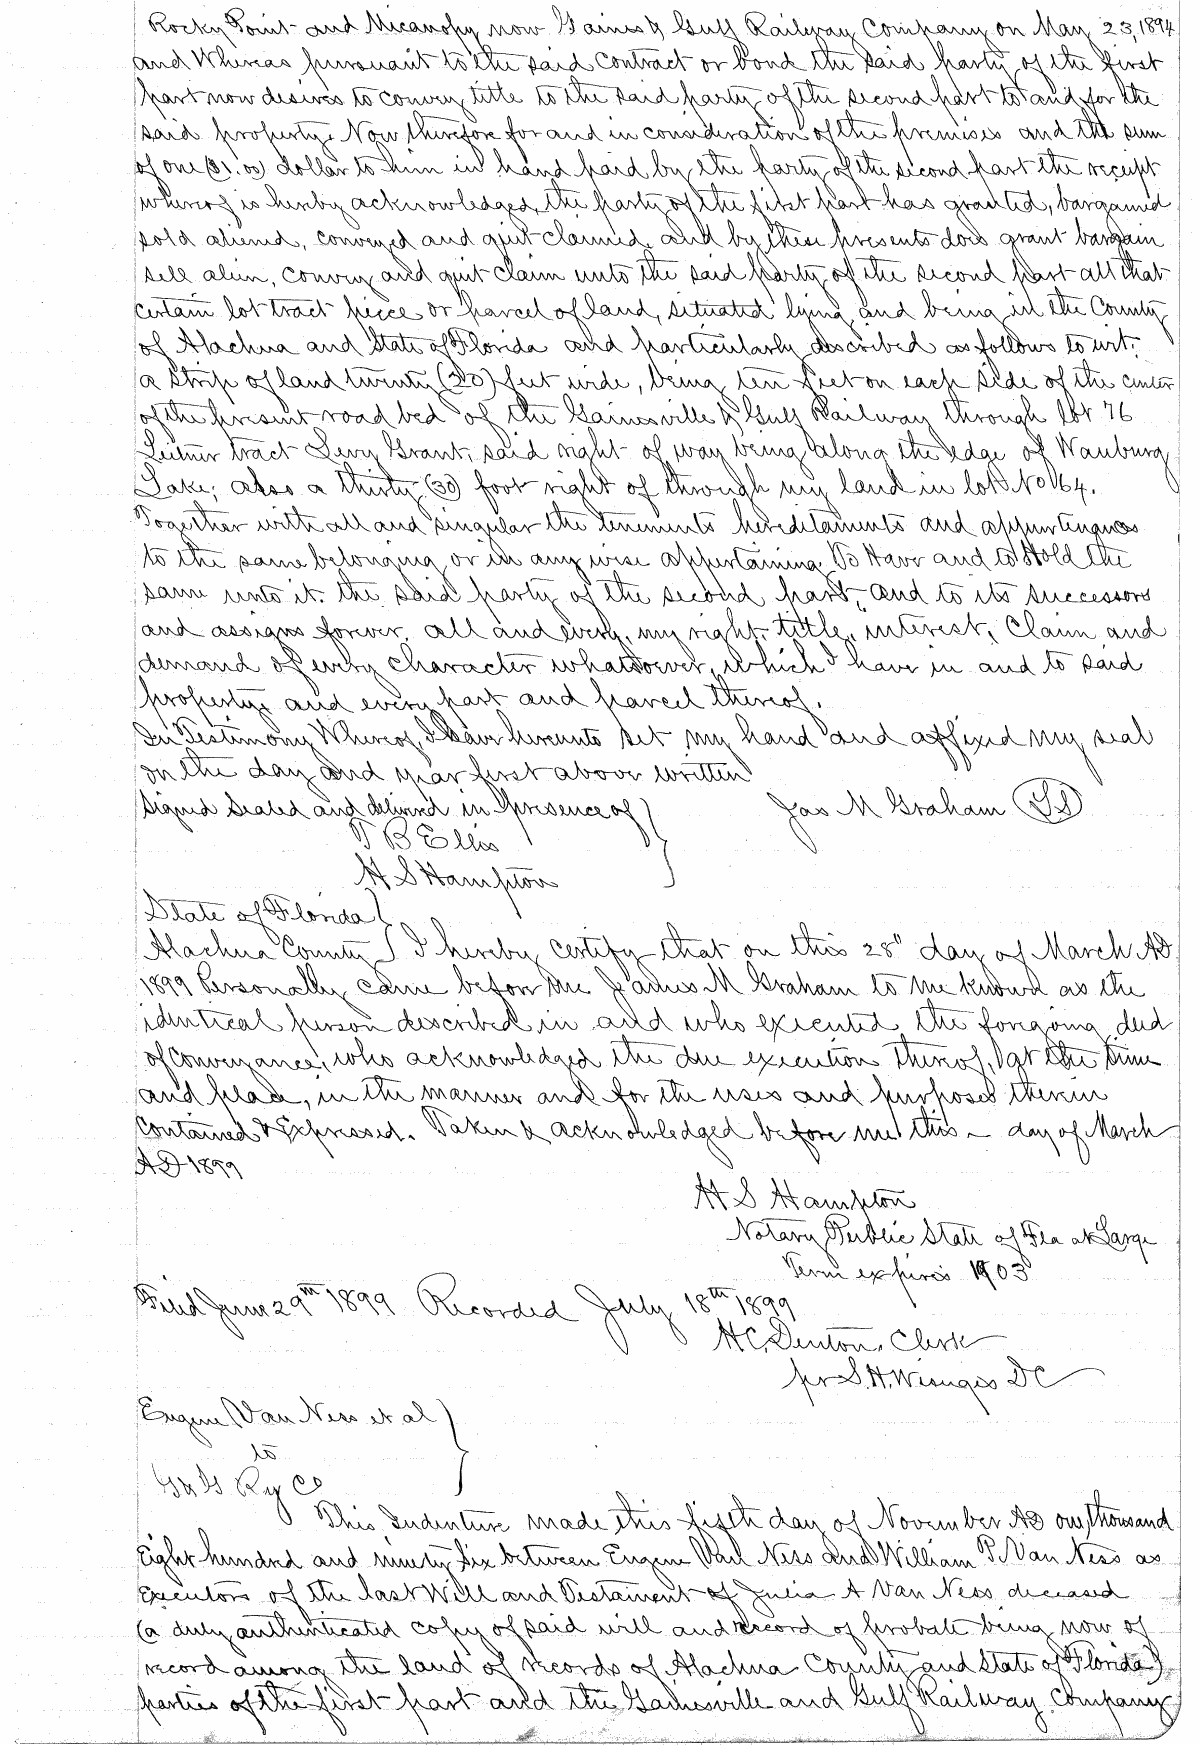 Rocky Point and Micanopy now Gaines & Gulf Railway Company on May 23, 1894
and Whereas pursuant to the said Contract or bond the said party of the first
part now desires to convey title to the said party of the second part to and for the
said property. Now therefore for and in consideration of the premises and the sum
of one ($1.00) dollar to him in hand paid by the party of the second part the receipt
whereof is hereby acknowledged, the party of the first part has granted, bargained
sold aliened, conveyed and quit claimed, and by these presents does grant bargain
sell alien, convey and quit claim unto the said party of the second part all that
certain lot tract piece or parcel of land, situated lying and being in the County
of Alachua and State of Florida and particularly described as follows to wit:
a strip of land twenty (20) feet wide, being ten feet on each side of the center
of the present road bed of the Gainesville & Gulf Railway through lot 76
Leitner tract Levy Grant, said right of way being along the edge of Wauburg
Lake; also a thirty (30) foot right of through my land in lot No 164.
Together with all and singular the tenements hereditaments and appurtenances
to the same belonging or in any wise appertaining. To Have and to Hold the
same unto it. the said party of the second part, and to its successors
and assigns forever, all and every, my right, title, interest, Claim and
demand of every character whatsoever, which I have in and to said
property, and every part and parcel thereof.
In Testimony Whereof, I have hereunto set my hand and affixed my seal
on the day and year first above written
Signed Sealed and delivered in presence of } Jas M Graham
T B Ellis
H S Hampton
State of Florida }
Alachua County } I hereby certify that on this 28" day of March AD
1899 Personally came before me James M Graham to me known as the
identical person described in and who executed the foregoing deed
of Conveyance, who acknowledged the due execution thereof, at the time
and place, in the manner and for the uses and purposes therein
Contained & Expressed. Taken & acknowledged before me this — day of March
AD 1899
H S Hampton
Notary Public State of Fla at Large
Term expires 1903
Filed June 29th 1899 Recorded July 18th 1899
H.C. Denton, Clerk
pr S.H. Wienges DC
Eugene Van Ness et al }
to
G & G Ry Co
This Indenture made this fifth day of November AD one thousand
Eight hundred and ninety six between Eugene Van Ness and William P. Van Ness as
Executors of the last Will and Testament of Julia A Van Ness deceased
(a duly authenticated copy of said will and record of probate being now of
record among the land of records of Alachua County and State of Florida)
parties of the first part and the Gainesville and Gulf Railway Company